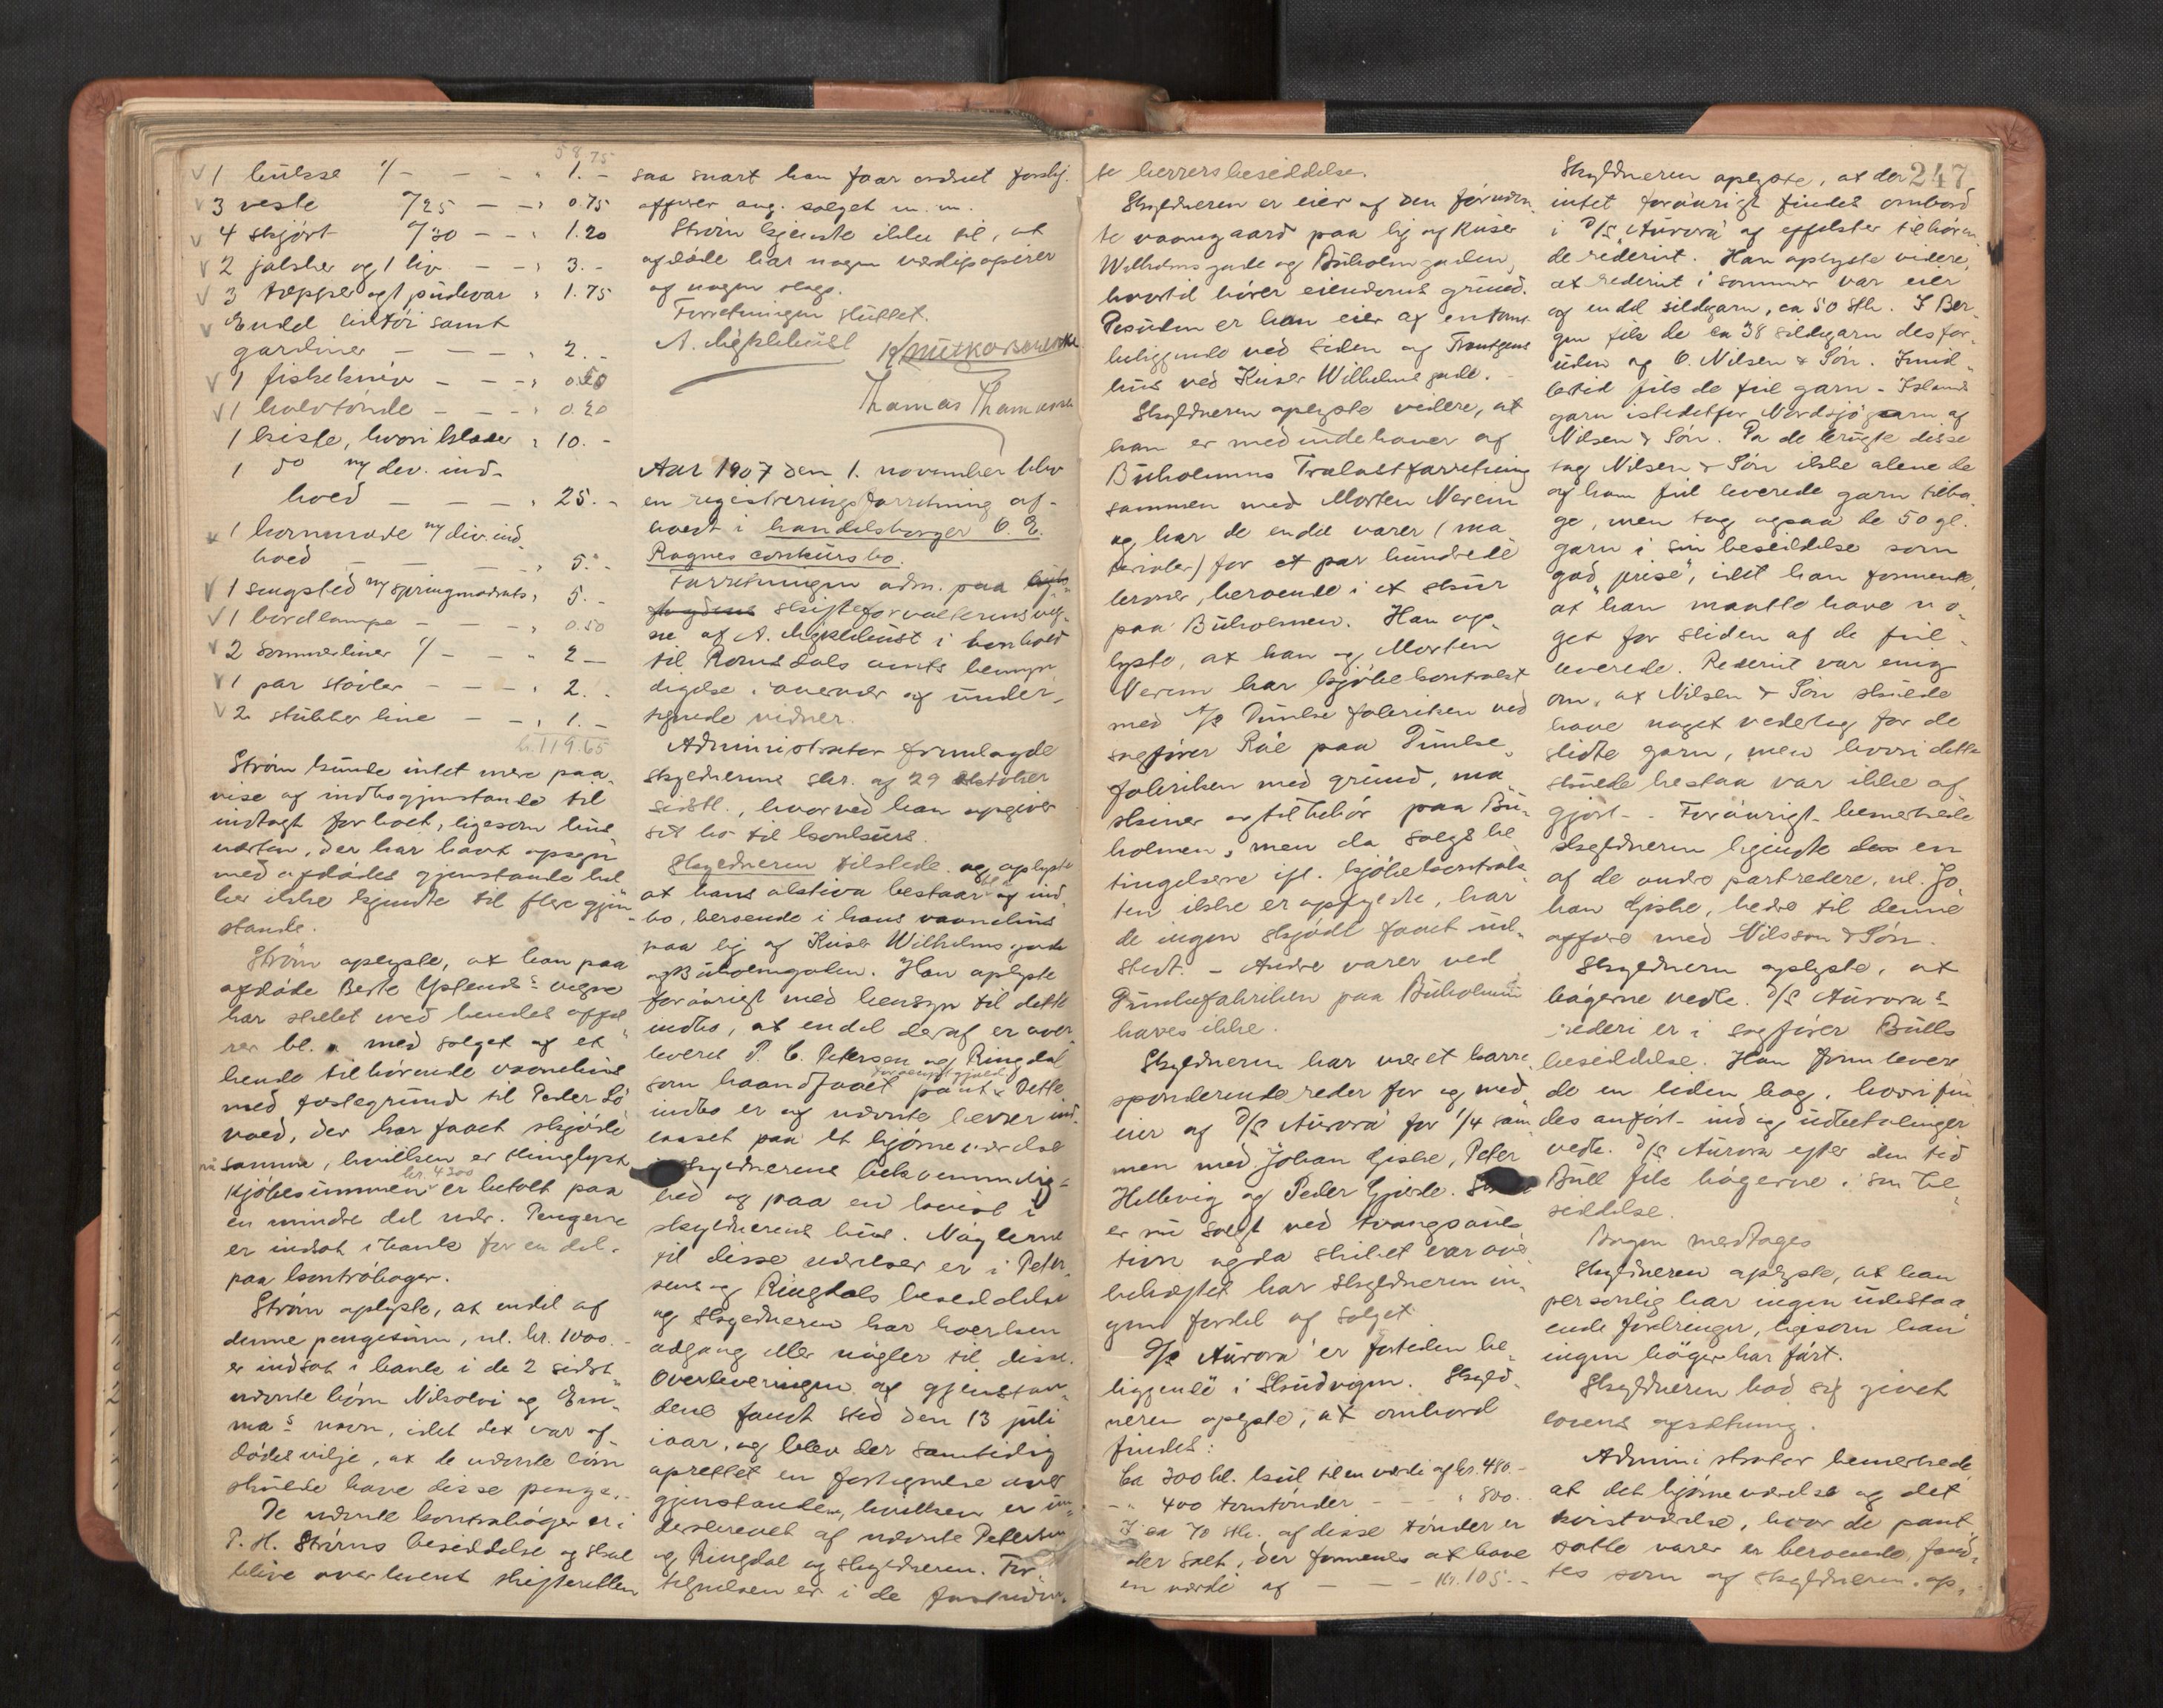 58.75
1 lükse 1/ - - - " 1.-
3 veste 7/25 - - " 0.75
4 skjört 7/30 - - " 1.20
2 jakker og 1 liv - - " 3.-
3 tæpper og 1 püdevar " 1.75
Endel sildtöi samt
gardiner - - - - " 2.-
1 fiskekniv - - - " 0.50
1 halvtönde - - - " 0.20
1 kiste, hvori klæder " 10.-
1 do m/ dev. ind-
hold - - - - " 25.-
1 kommode m/ div. ind-
hold - - - - " 5.-
1 sengsted m/ springmadrats " 5.-
1 bordlampe - - - " 0.50
2 sommerliner 1/ - - " 2-
1 par stövler - - - " 2.-
2 stubber line - - " 1.-
kr. 119.65
Ström künde intet mere paa-
vise af indbogjenstande til
indtægt for boet, ligesom hüs-
værten, der har havt opsyn
med afdödes gjenstande hel-
ler ikke kjendte til flere gjen-
stande.
Ström oplyste, at han paa
afdöde Berte Yslends vegne
har stellet med hendes affæ-
rer bl. a. med salget af et
hende tilhörende vaanehüs
med festegründ til Peder Lö-
vold, der har faaet skjöde
samme, hvilken er thinglyst
kr. 4200
Kjöbesummen er betalt paa
en mindre del nær. Pengene
er indsat i bank for en del
paa kontrabøger.
Ström oplyste, at endel af
denne pengesüm, nl. kr. 1000.-
er indsat i bank i de 2 sidst-
nævnte börn Nikolai og Em-
mas navn, idet det var af-
dödes vilje, at de nævnte börn
skülde have disse penge.
De nævnte kontraböger er i
P. H. Ströms besiddelse og skal
blive overlevert skifteretten
saa snart han faar ordnet forskj.
affærer ang. salget m.m.
Ström kjendte ikke til, at
afdöde har nogen værdipapirer
af nogen slags.
Forretningen sluttet.
A. Myklebüst
Thomas Thomassen
Aar 1907 den 1. november blev
en registreringsforretning af-
holdt i handelsborger O. E.
Rognes conkürsbo.
Forretningen adm. paa
skifteforvalterens veg-
ne af A. Myklebüst i henhold
til Romsdals amts bemyn-
digelse i overvær af under-
tegnede vidner.
Administrator fremlagde
skyldnerens skr. af 29 oktober
sidstl., hvorved han opgiver
sit bo til konkürs.
Skyldneren tilstede og oplyste
at hans aktiva bestaar bl. a. af ind-
bo, beroende i hans vaanehüs
paa hj. af Keiser Wilhelms gade
og Büholmgaden. Han oplyste
foröurigt med hensyn til dette
indbo, at endel deraf er over-
leveret P. C. Petersen og Ringdal
som haandfaaet pant. Dette
indbo er af nævnte herrer ind-
laaset paa et hjörneværelse
i skyldnerens bekvemmelig-
hed og paa en kvist i
skyldnerens hüs. Nöglerne
til disse værelser er i Peter-
sens og Ringdals besiddelse
og skyldneren har hverken
adgang eller nögler til disse.
Overleveringen af gjenstan-
dene fandt sted den 13 jüli
iaar, og blev der samtidig
oprettet en fortegnelse over
gjenstandene, hvilken er ün-
derskrevet af nævnte Petersen
og Ringdal og skyldneren. For-
tegnelsen er i de forannævn-
te herrers besiddelse.
Skyldneren er eier af den föromtal-
te vaaningaard paa hj. af Keiser
Wilhelms gade og Büholmgaden,
hvortil hörer eiendoms gründ.
Desüden er han eier af en tomt
beliggende ved siden af Frantzens
hüs ved Keiser Wilhelms gade.
Skyldneren oplyste videre, at
han er medindehaver af
Büholmens Trælastforretning
sammen med Morten Nerem
og har de endel varer (ma-
terialer) for et par hündrede
kroner, beroende i et skür
paa Büholmen. Han op-
lyste, at han og Morten
Nerem har kjöbekontrakt
med A/S Dünkefabriken ved
sagförer Röe paa Dünke-
fabriken med gründ, ma-
skiner og tilbehör paa Bü-
holmen, men da salgsbe-
tingelserne ifl. kjöbekontrak-
ten ikke er opfyldte, har
de ingen skjöde faaet üd-
stedt. - Andre varer ved
Dünkefabriken paa Büholmen
haves ikke.
Skyldneren har været korre-
sponderende reder for og med-
eier af D/S "Aürora" for 1/4 sam-
men med Johan Giske, Peter
Hellevig og Peder Gjerde.
er nü solgt ved tvangsauk-
tion og da skibet var over-
behæftet har skyldneren in-
gen fordel af salget.
D/S "Aürora" er fortiden be-
liggende i Sküdvigen. Skyld-
neren oplyste, at ombord
findes:
Ca 300 hl. kül til en værdi af kr. 480.-
- " 400 tomtönder - - " 800.-
I ca 70 stk. af disse tönder er
der salt, der formenes at have
en værdi af - - - kr. 105.-
247
Skyldneren oplyste, at der
intet foröurigt findes ombord
i D/S "Aürora" af effekter tilhören-
de rederiet. Han oplyste videre,
at rederiet i sommer var eier
af endel sildegarn, ca 50 stk. I Ber-
gen fik de ca 38 sildegarn desfor-
üden af O. Nilsen & Sön. Imid-
lertid fik de feil garn - Islands
garn istedetfor Nordsjögarn af
Nilsen & Sön. Da de brügte disse
tog Nilsen & Sön ikke alene de
af ham feil leverede garn tilba-
ge, men tog ogsaa de 50 gl.
garn i sin besiddelse som
god "prise", idet han formente,
at han maatte have no-
get for sliden af de feil-
leverede. Rederiet var enig
om, at Nilsen & Sön skülde
have noget vederlag for de
slidte garn, men hvori dette
skülde bestaa var ikke af-
gjort. - Foröurigt bemerkede
skyldneren kjendte den en
af de andre partredere, nl. Jo-
han Giske, bedre til denne
affære med Nilsson & Sön.
Skyldneren oplyste, at
bögerne vedk. D/S Aürora's
rederi er i sagförer Bülls
besiddelse. Han fremlever-
de en liden bog, hvori fin-
des anfört ind og üdbetalinger
vedk. D/S Aürora efter den tid
Büll fik bögerne i sin be-
siddelse.
Bogen medtages
Skyldneren oplyste, at han
personlig har ingen üdestaa-
ende fordringer, ligesom han
ingen böger har fört.
Skyldneren bad sig givet
lovens opsætning.
Administrator bemerkede
at det hjörneværelse og det
kvistværelse, hvor de pant-
satte varer er beroende, fand-
tes som af skyldneren op-